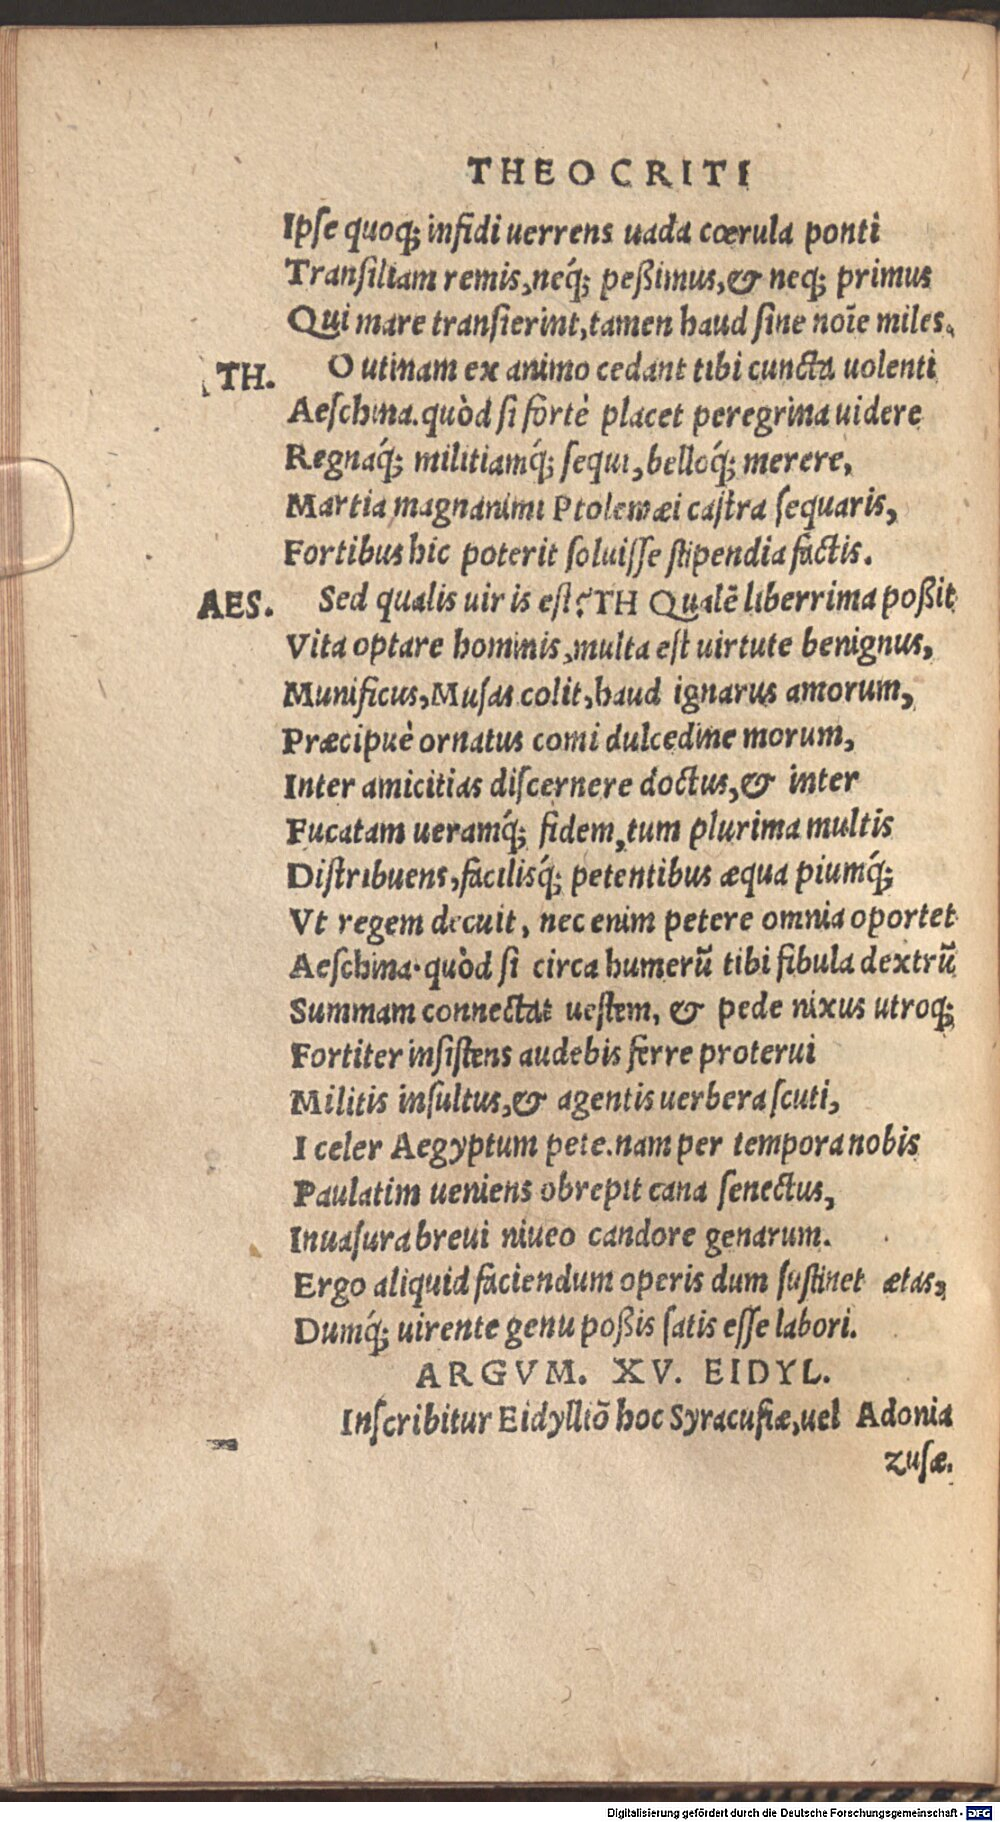 THEOCRITI
Ipſe quoq; infidi uerrens uada cœrula ponti
Tranſiliam remis, neq́; peßimus, & neq; primus
Qui mare tranſierint, tamen haud ſine noīe miles.
TH. O utinam ex animo cedant tibi cuncta uolenti
Aeſchina. quòd ſi fortè placet peregrina uidere
Regnaq́; militiamq́; ſequi, belloq́; merere,
Martia magnanimi Ptolemæi caſtra ſequaris,
Fortibus hic poterit ſoluiſſe ſtipendia factis.
AES. Sed qualis uir is eſt? TH Qualē liberrima poßit
Vita optare hominis, multa eſt uirtute benignus,
Munificus, Muſas colit, haud ignarus amorum,
Præcipuè ornatus comi dulcedine morum,
Inter amicitias diſcernere doctus, & inter
Fucatam ueramq́; fidem, tum plurima multis
Diſtribuens, facilisq́; petentibus æqua piumq́;
Vt regem decuit, nec enim petere omnia oportet
Aeſchina. quòd ſi circa humerū tibi fibula dextrū
Summam connectat ueſtem, & pede nixus utroq;
Fortiter inſiſtens audebis ferre proterui
Militis inſultus, & agentis uerbera ſcuti,
I celer Aegyptum pete. nam per tempora nobis
Paulatim ueniens obrepit cana ſenectus,
Inuaſura breui niueo candore genarum.
Ergo aliquid faciendum operis dum ſuſtinet ætas,
Dumq́; uirente genu poßis ſatis eſſe labori.
ARGVM. XV. EIDYL.
Inſcribitur Eidylliō hoc Syracuſiæ, uel Adonia
zuſæ.
Digitalisierung gefördert durch die Deutsche Forschungsgemeinschaft - DFG